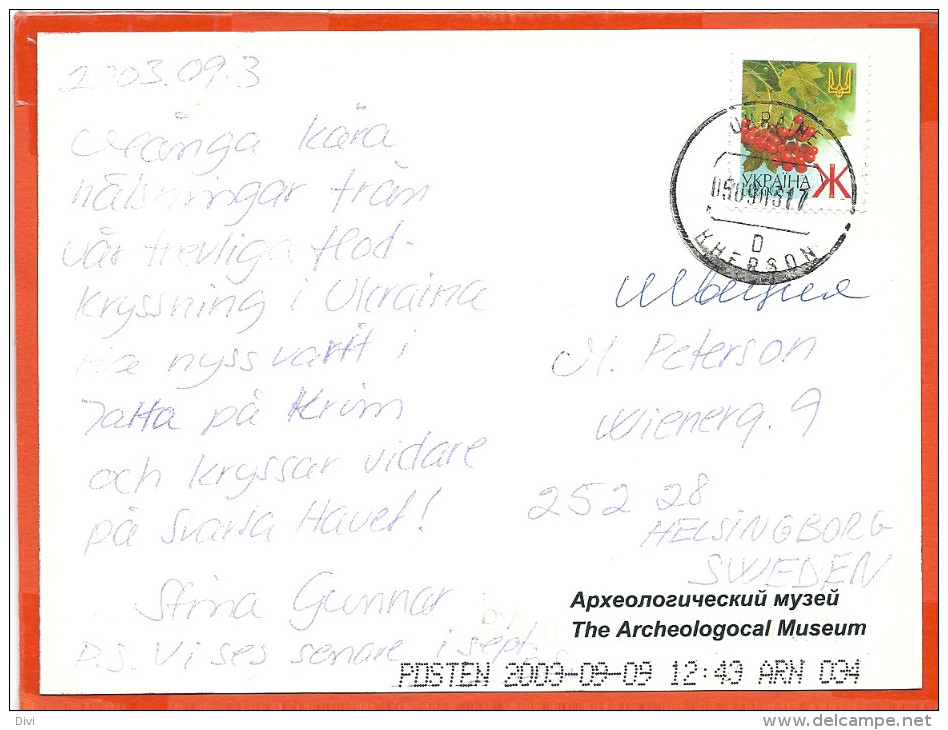 2003.09.3
Många kära
hälsningar från
vår trevliga flod-
kryssning i Ukraina
Ha nyss varit i
Jalta på Krim
och kryssar vidare
på Svarta Havet!
Stina Gunnar
P.S. Vi ses senare i sept.
УКРАЇНА
Ж
UKRAINE
05090317
D
KHERSON
Швеция
M. Peterson
Wienerg. 9
252 28
HELSINGBORG
SWEDEN
Археологический музей
The Archeologocal Museum
POSTEN 2003-09-09 12:43 ARN 034
Divi
www.delcampe.net